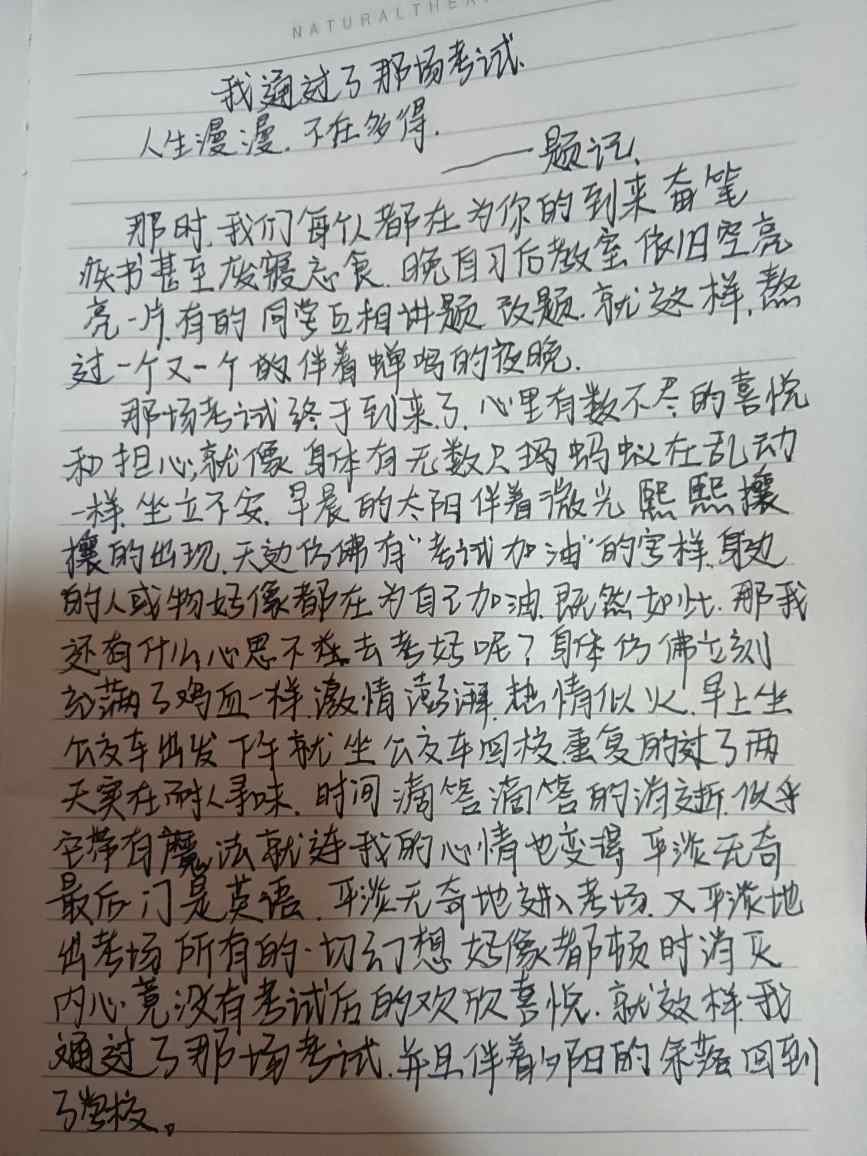 NATURALTHE
我通过了那场考试.
人生漫漫.不在多得.
——题记.
那时.我们每个人都在为你的到来奋笔
疾书甚至废寝忘食.晚自习后教室依旧空亮
亮一片.有的同学互相讲题 改题.就这样,熬
过一个又一个的.伴着蝉鸣的夜晚.
那场考试终于到来了.心里有数不尽的喜悦
和担心,就像身体有无数只玛蚂蚁在乱动
一样.坐立不安.早晨的太阳伴着微光 熙熙攘
攘的出现.天边仿佛有"考试加油"的字样.身边
的人或物好像都在为自己加油.既然如此.那我
还有什么心思不去考好呢?身体仿佛立刻
充满了鸡血一样.激情澎湃.热情似火.早上坐
公交车出发下午就坐公交车回校.重复的过了两
天实在耐人寻味.时间滴答滴答的消逝.似乎
它带有魔法就连我的心情也变得平淡无奇
最后一门是英语.平淡无奇地进入考场.又平淡地
出考场所有的一切幻想好像都顿时消灭
内心竟没有考试后的欢欣喜悦.就这样.我
通过了那场考试.并且伴着夕阳的余落回到
了学校。